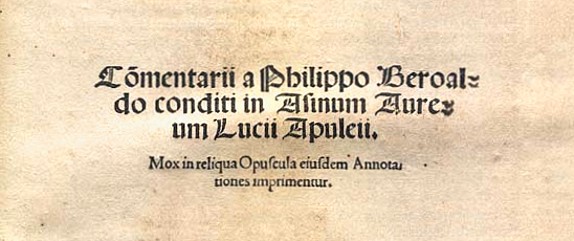 Cõmentarii a Philippo Beroal⸗
do conditi in Asinum Aure⸗
um Lucii Apuleii.
Mox in reliqua Opuſcula eiuſdem Annota⸗
tiones imprimentur.